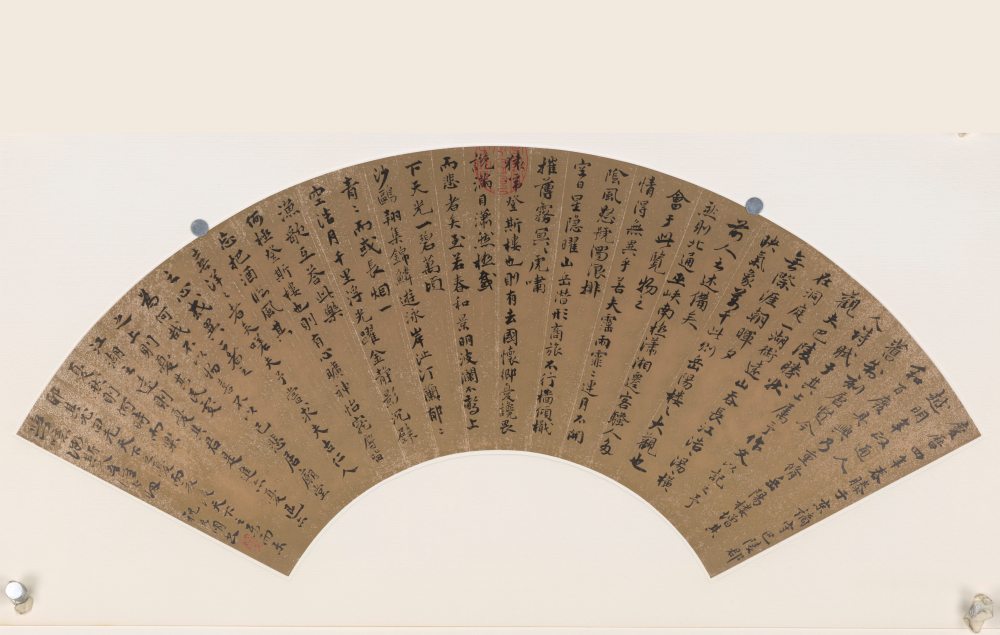 慶曆四年春滕子京謫守巴陵郡
越明年政通人
和百廢具興乃重脩岳陽樓增其
人詩賦於其上屬予作文以記之予
觀夫巴陵勝狀
在洞庭一湖銜遠山吞長江浩湯橫
無際涯朝暉夕
氣象萬千此則岳陽樓之大觀也
前人之述備矣
然則北通巫峽南極瀟湘遷客騷人多
會于此覽物之
情得無異乎若夫霪雨霏〻連月不開
陰風怒號濁浪排
空日星隱曜山岳潛形商旅不行檣傾檝
摧薄霧冥〻虎嘯
猿啼登斯樓也則有去國懷鄉憂讒畏
譏滿目蕭然極感
而悲者矣至若春和景明波瀾不驚上
下天光一碧萬頃
沙鷗翔集錦鱗遊泳岸芷汀蘭郁〻
青〻而或長烟一
空浩月千里浮光曜金靜影沉璧
漁歌互答此樂
何極登斯樓也則有心曠神怡寵辱皆
忘把酒臨風其
喜洋〻者矣嗟夫予嘗求古仁人
之心或異二者之
為何哉不以物喜不以己悲居廟堂
之上則憂其民處
江湖之遠則憂其君是進亦憂退亦
祝允明書